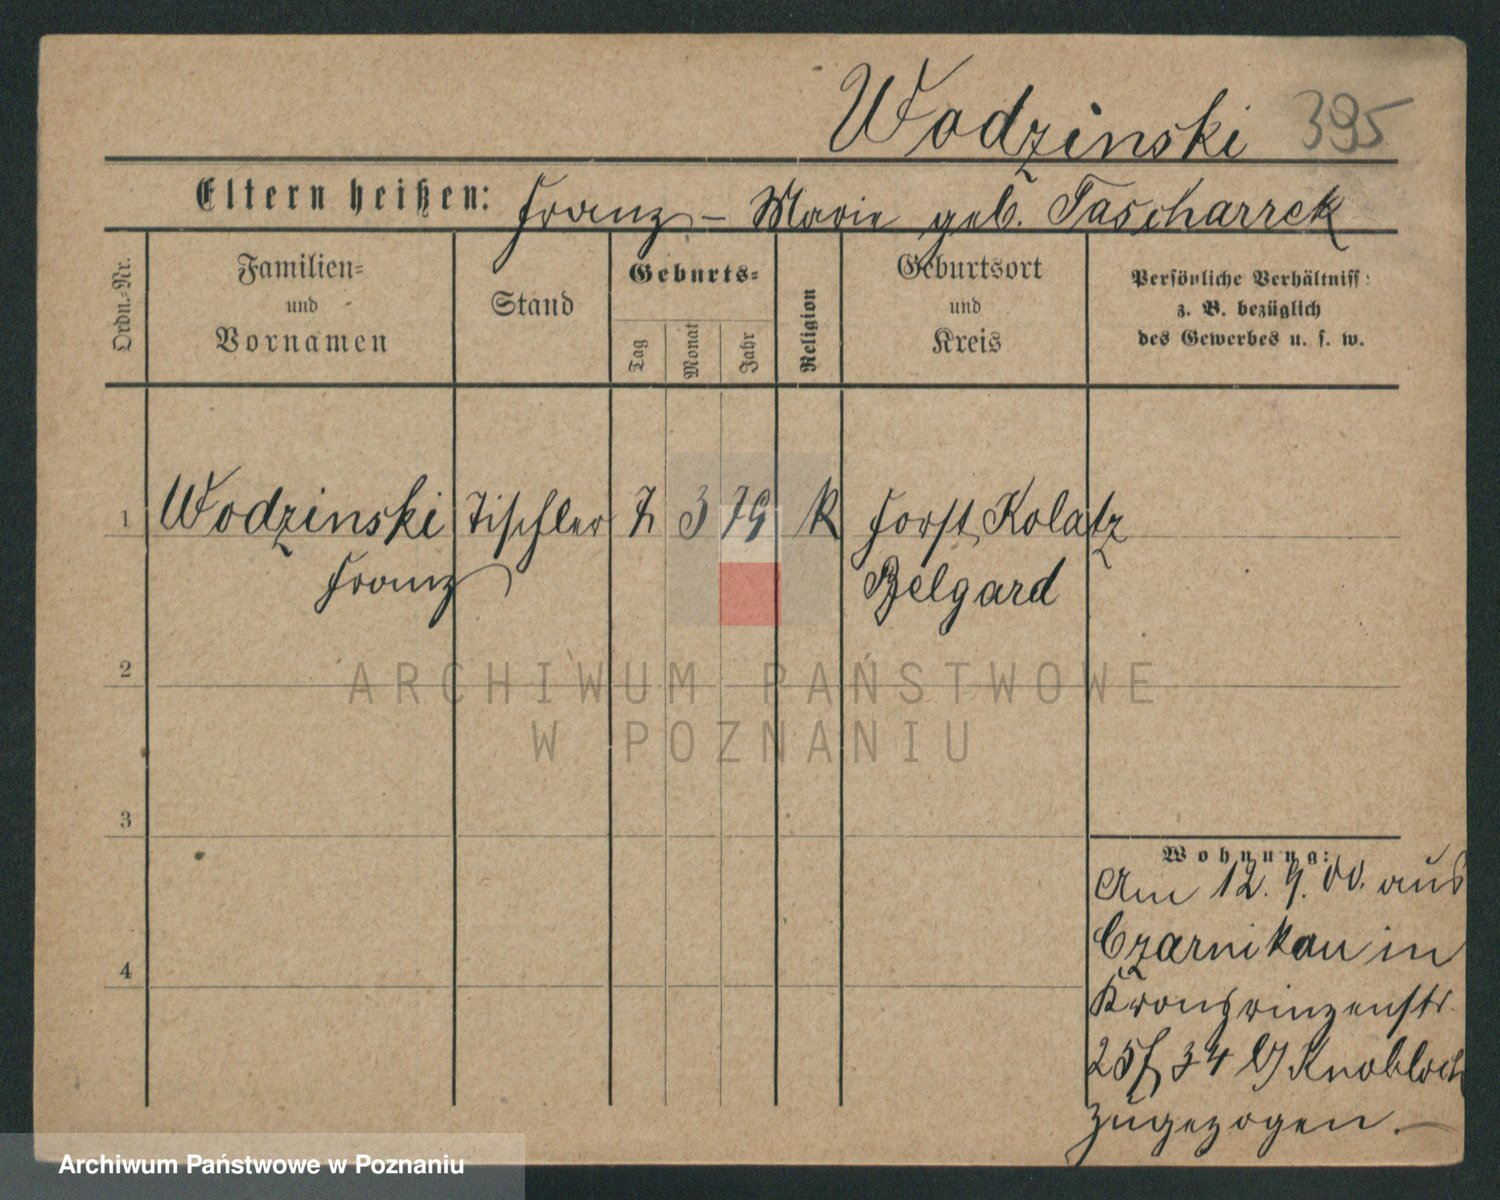 Wodzinski 395
Eltern heißen: Franz – Marie geb. Tascharrek
Ordn.-Nr.
Familien-
und
Vornamen
Stand
Geburts-
Tag
Monat
Jahr
Religion
Geburtsort
und
Kreis
Persönliche Verhältniss
z. B. bezüglich
des Gewerbes u. s. w.
1 Wodzinski Tischler 7 3 79 K Forst Kolatz
Franz Belgard
2
3
4
Wohnung:
Am 12. 9. 00. aus
Czarnikau in
Kronprinzenstr.
25 34 Knobloch
zugezogen. –
ARCHIWUM PAŃSTWOWE
W POZNANIU
Archiwum Państwowe w Poznaniu